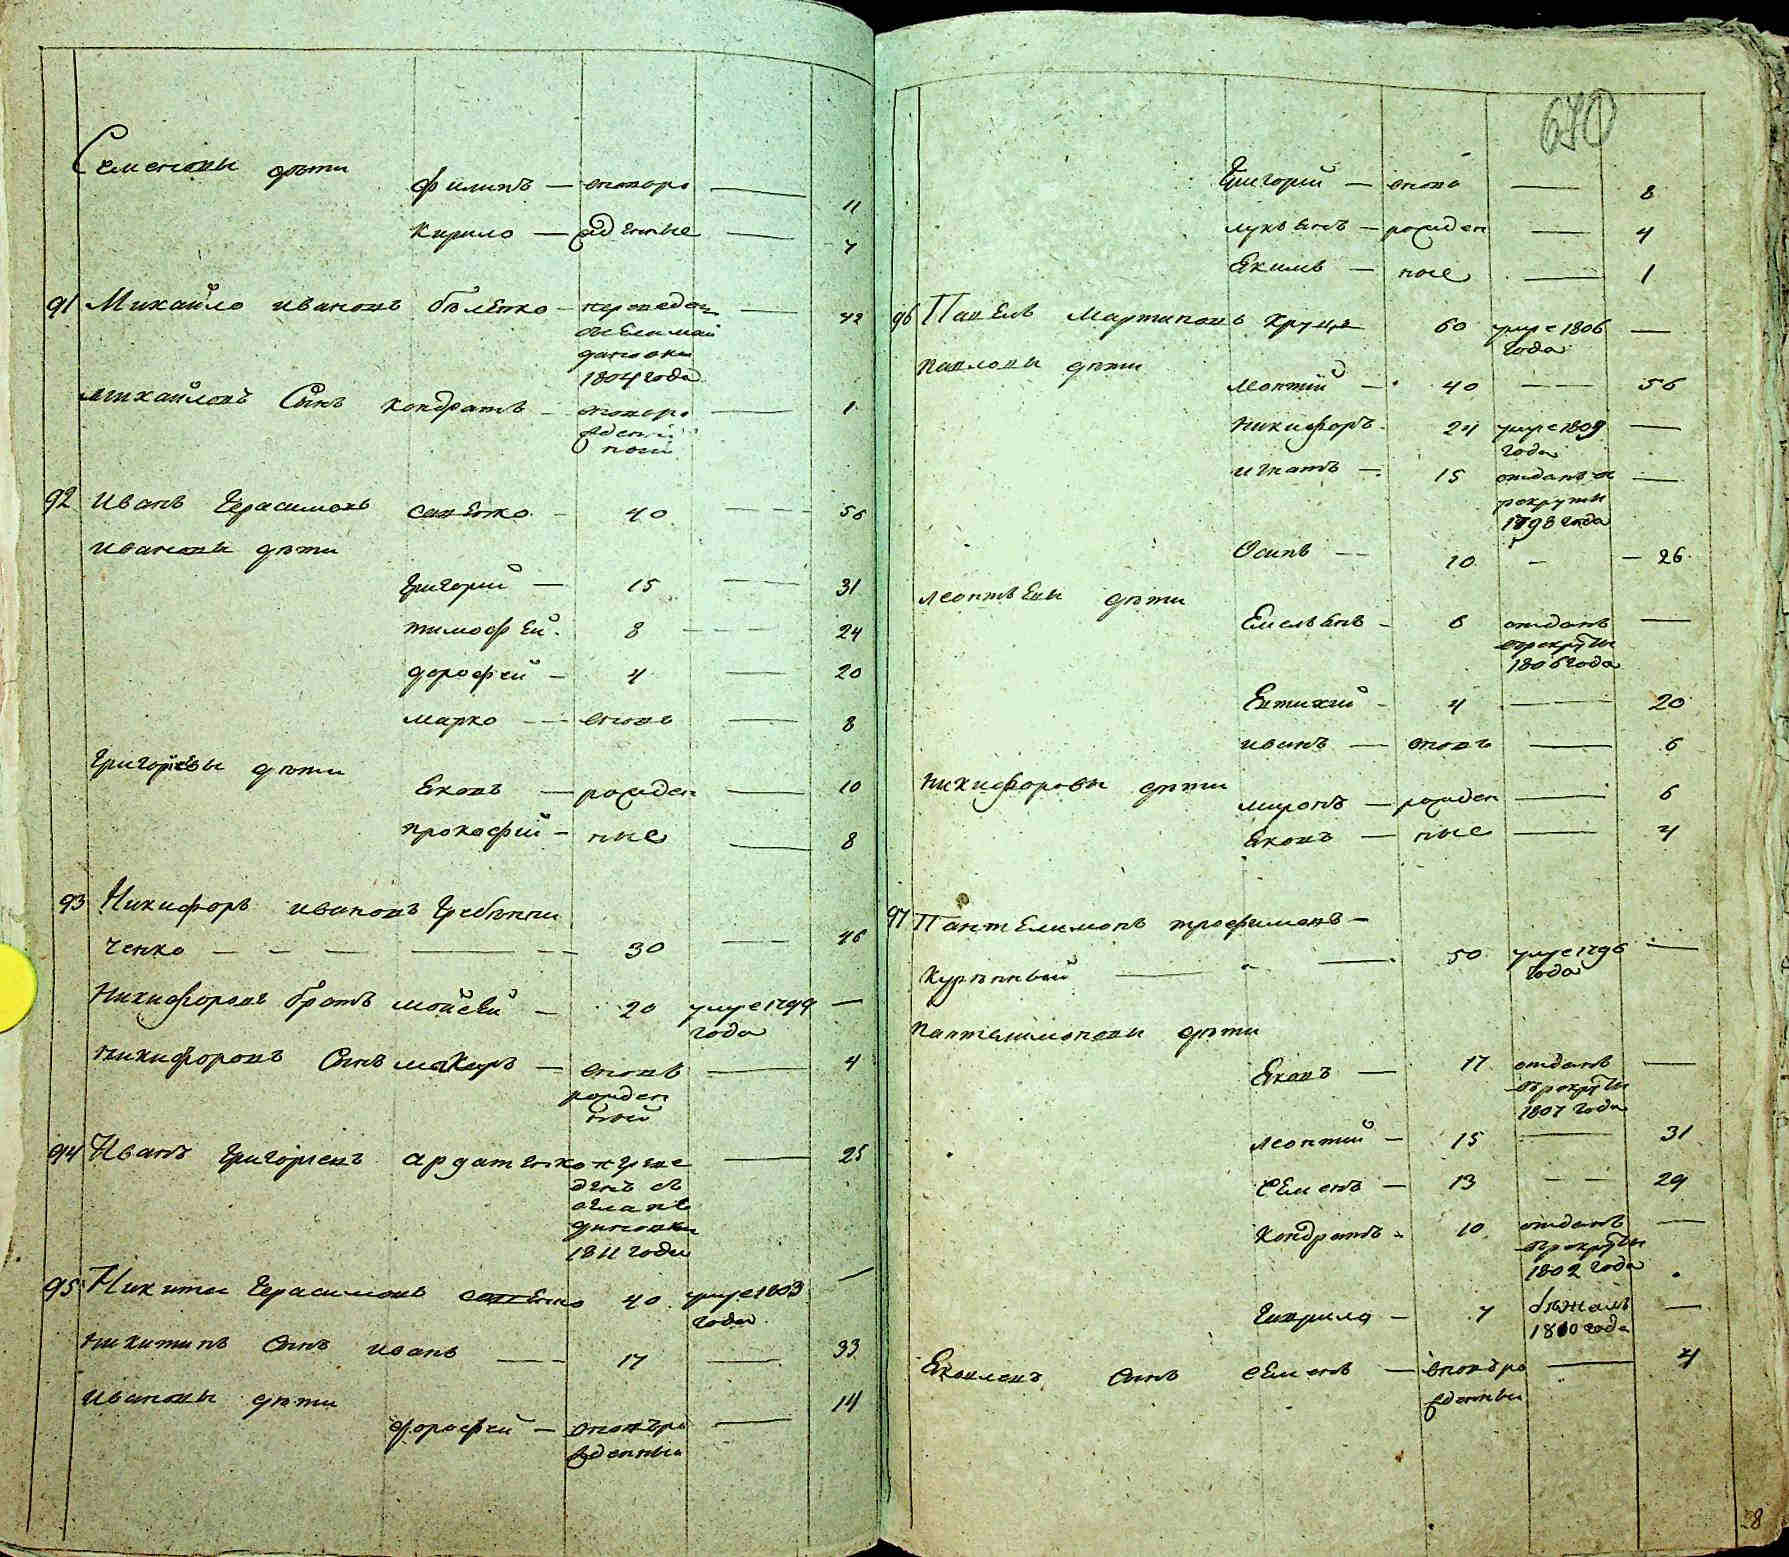 Семеновы дѣти
Филипъ — вновро — 11
Кирило — жденные — 7
91 Михайло Ивановъ Бѣленко — переведен — 42
1804 года
Михайловъ Сынъ Кондратъ — вновро — 1
жденный
92 Иванъ Герасимовъ Савенко — 40 — 56
Ивановы дѣти
Григорий — 15 — 31
Тимофѣй — 8 — 24
Дорофей — 4 — 20
Марко — вновь — 8
Григорьевы дѣти
Яковъ — рожден — 10
Прокофий — ные — 8
93 Никифоръ Ивановъ Гребѣнни
ченко — 30 — 46
Никифоровъ братъ Мойсей — 20 умре 1799 —
года
Никифоровъ Сынъ Макаръ — вновь — 4
рожден
ный
94 Иванъ Григорьевъ Ардатенко переве — 25
денъ съ
1811 года
95 Никита Герасимовъ Савенко 40 умре 1803 —
года
Никитинъ Сынъ Иванъ — 17 — 33
Ивановы дѣти
Дорофей — вновъро — 14
жденный
670
Григорий — вновь — 8
Лукьянъ — рожден — 4
Екимъ — ные — 1
96 Павелъ Мартиновъ 60 умре 1806 —
года
Павловы дѣти
Леонтий — 40 — 56
Никифоръ 24 умре 1809 —
года
Игнатъ — 15 отданъ в —
рекруты
1798 года
Осипъ — 10 — 26
Леонтьевы дѣти
Емельянъ — 6 отданъ —
врекруты
1806 года
Евтихий — 4 — 20
Иванъ — вновь — 6
Никифоровы дѣти
Миронъ — рожден — 6
Яковъ — ные — 4
97 Пантелимонъ Трофимовъ —
Курѣнный — 50 умре 1796 —
года
Пантелимоновы дѣти
Яковъ — 17 отданъ —
врекруты
1807 года
Леонтий — 15 — 31
Семенъ — 13 — 29
Кондратъ — 10 отданъ —
врекруты
1802 года
Гаврило — 7 бѣжалъ —
1810 года
Яковлевъ Сынъ Семенъ — вновъро — 4
жденный